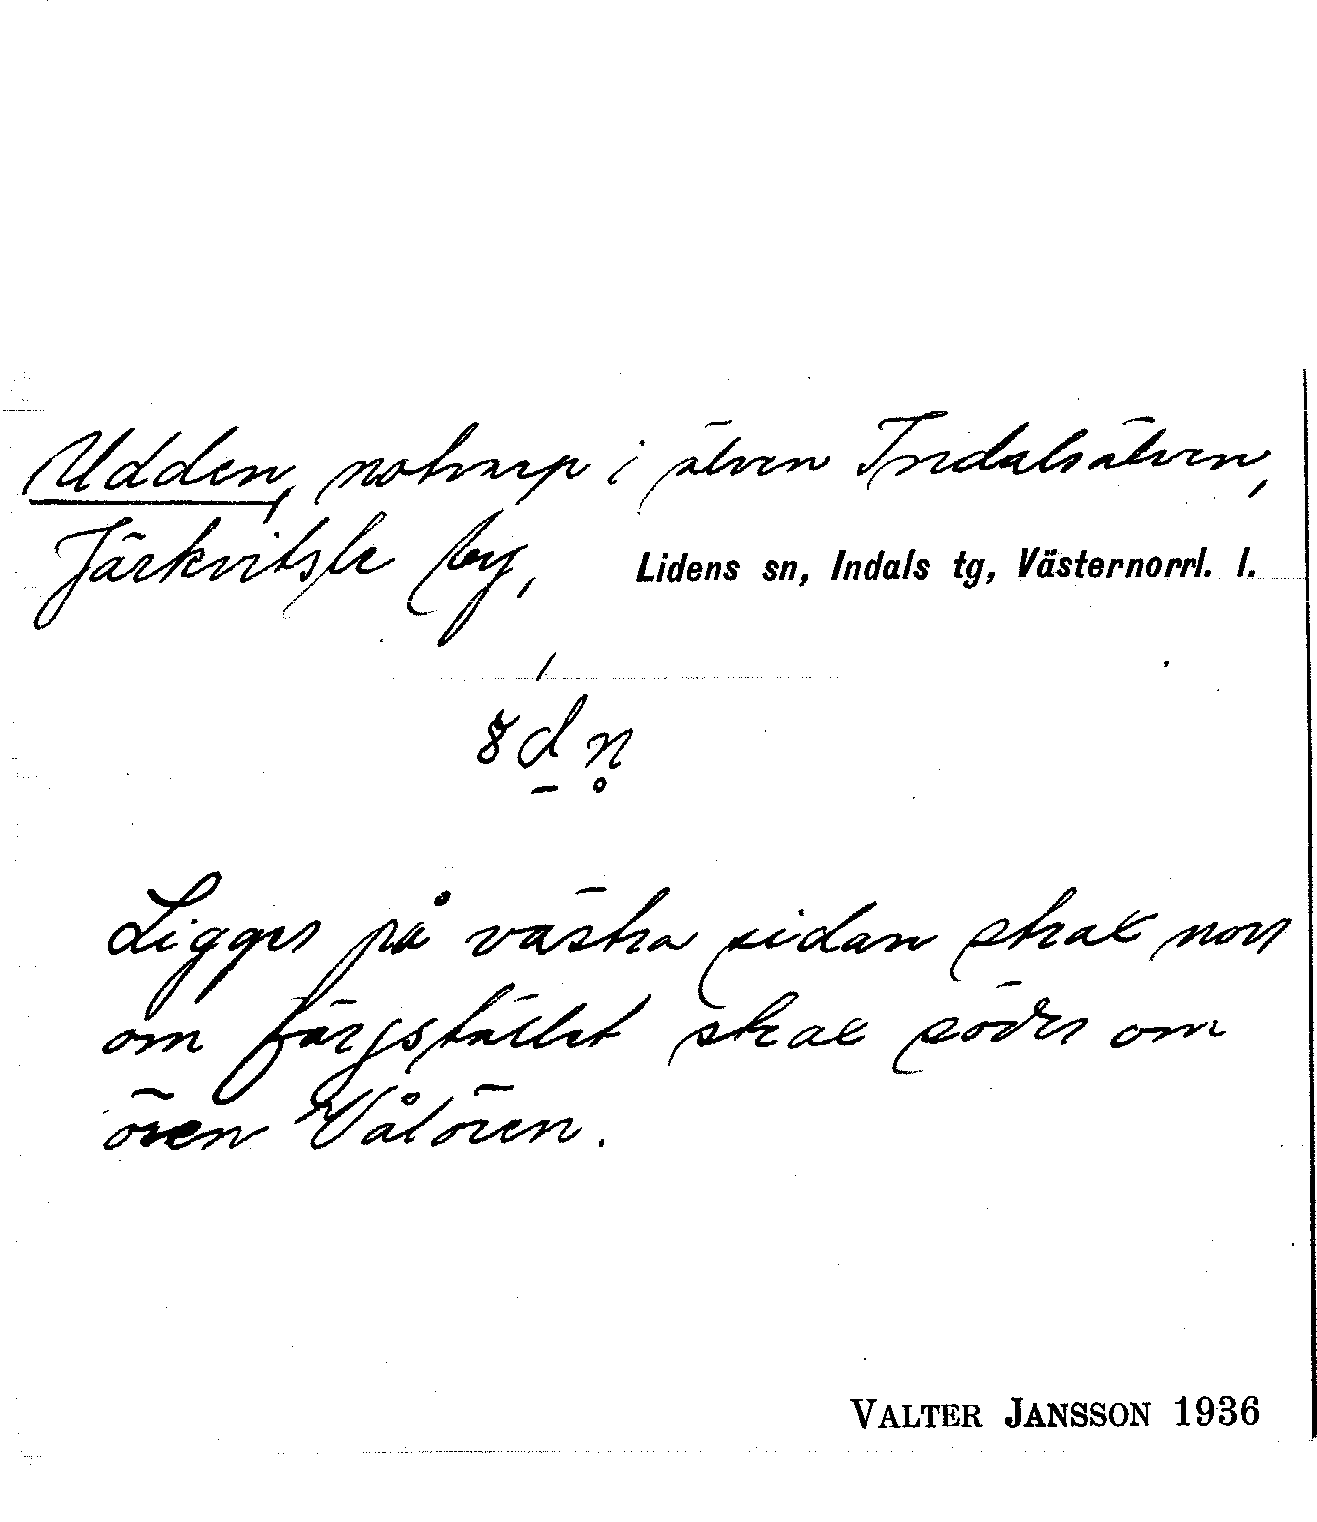 Udden, notvarp i älven Indalsälven,
Järkvitsle by, Lidens sn, Indals tg, Västernorrl. l.
Ligger på västra sidan strax norr
om färgstället strax söder om
ören Vålören.
VALTER JANSSON 1936